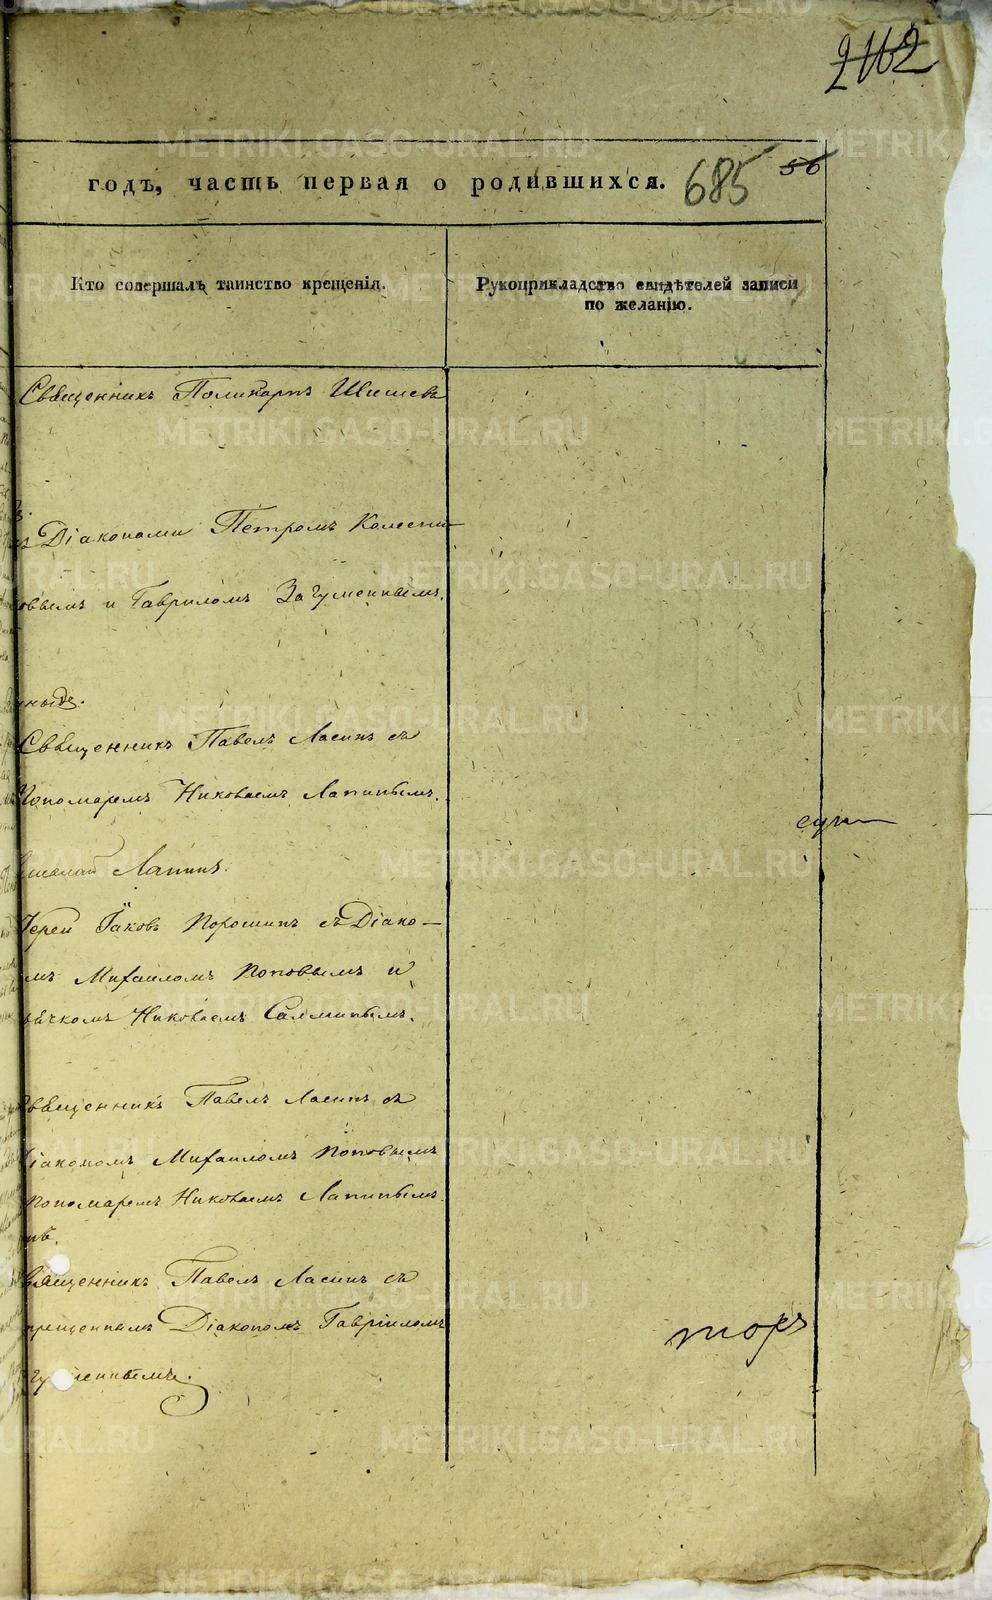 2112
годъ, часть первая о родившихся. 685 56
Кто совершалъ таинство крещенія.
Рукоприкладство свидѣтелей записи
по желанію.
Священникъ Поликарпъ Шишевъ
Діаконами Петромъ Колесни-
овымъ и Гавриломъ Загуменнымъ.
Священникъ Павелъ Ласинъ съ
Пономаремъ Николаемъ Лапинымъ.
Лапинъ.
Іерей Іаковъ Порошинъ съ Діако-
мъ Михаиломъ Поповымъ и
ячкомъ Николаемъ Салминымъ.
Священникъ Павелъ Ласинъ съ
Діакономъ Михаиломъ Поповымъ
Пономаремъ Николаемъ Лапинымъ
Священникъ Павелъ Ласинъ съ
Діакономъ Гавріиломъ
торъ
METRIKI.GASO-URAL.RU